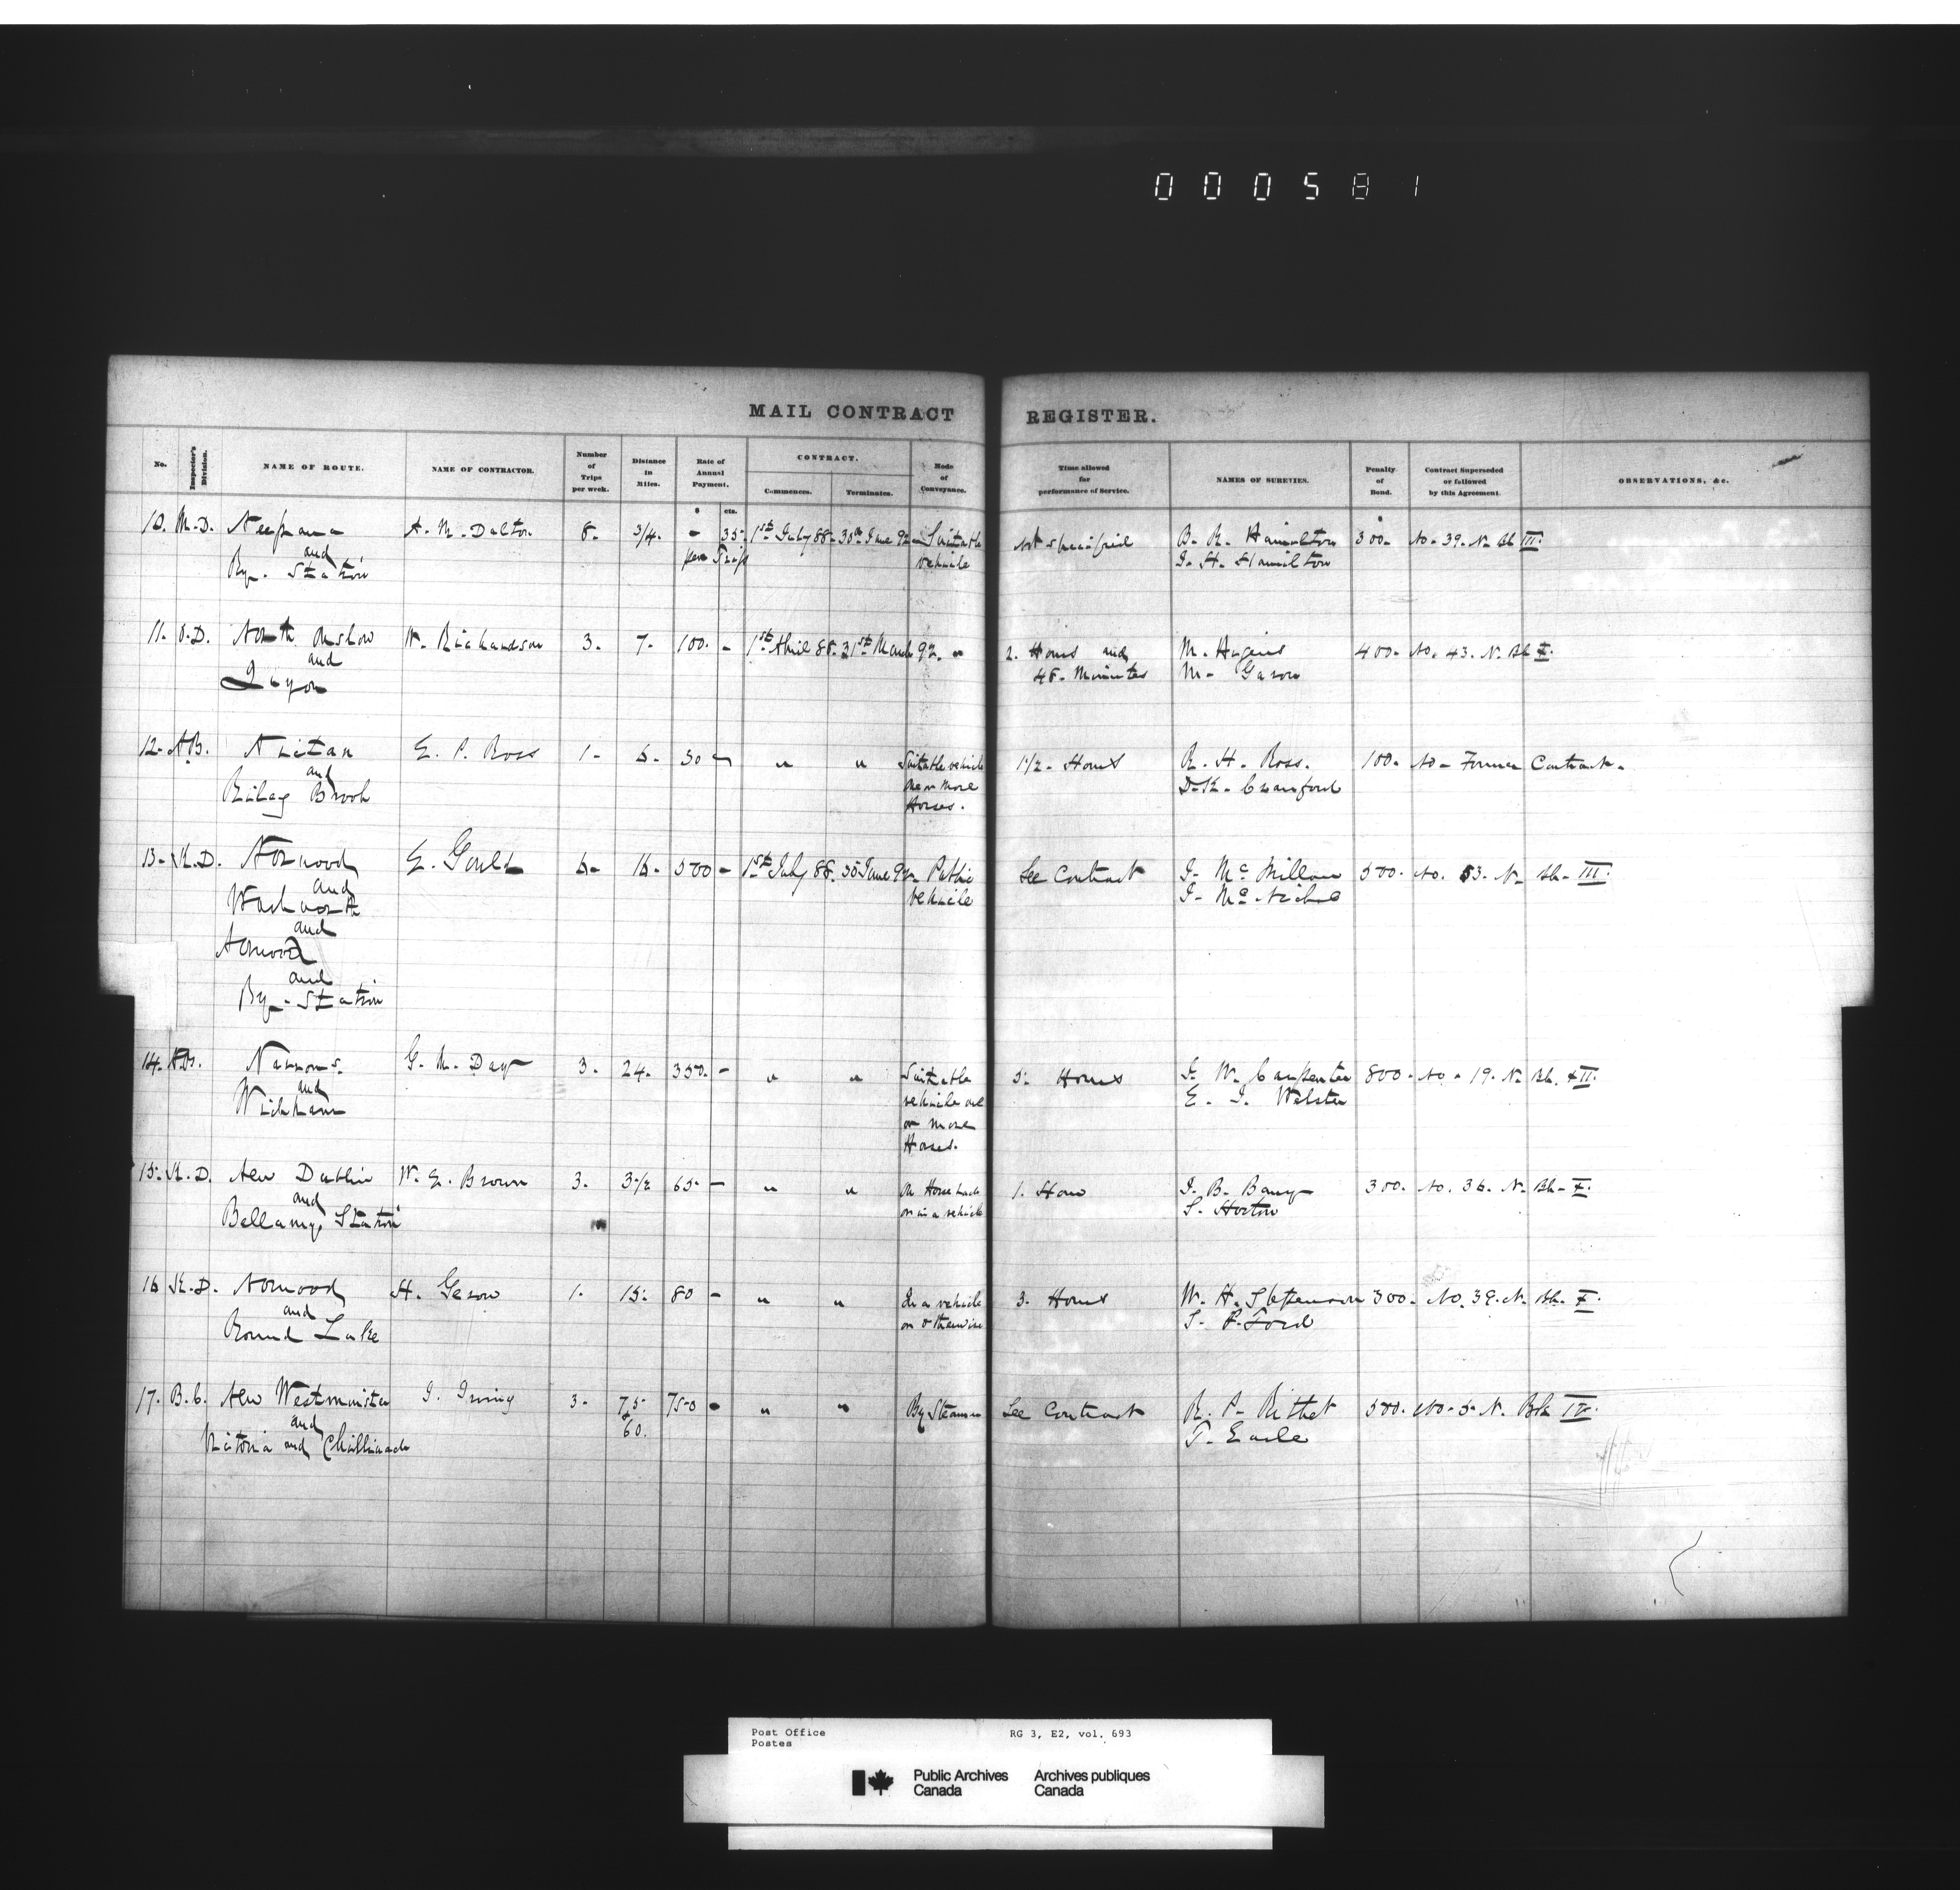 000581
MAIL CONTRACT REGISTER.
No. Inspector's Division. NAME OF ROUTE. NAME OF CONTRACTOR. Number of Trips per week. Distance in Miles. Rate of Annual Payment. CONTRACT. Commences. Terminates. Mode of Conveyance. Time allowed for performance of Service. NAMES OF SURETIES. Penalty of Bond. Contract Superseded or followed by this Agreement. OBSERVATIONS, &c.
$ cts. $
10. M.D. Neepawa A. M. Dalton 8. 3/4. - 35. 1st July 88. 30th June 92 Suitable Not specified B. R. Hamilton 300. No. 39. N. Bk III.
and per Trip vehicle J. H. Hamilton
Ry. Station
11. O.D. North Onslow W. Richardson 3. 7. 100. - 1st April 88. 31st March 92. " 2. Hours and M. 400. No. 43. N. Bk X.
and 48. Minutes M.
Quyon
12. N.B. E. P. Ross 1. 6. 30 - " " Suitable vehicle 1 1/2. Hours R. H. Ross. 100. No Former Contract.
and one or more D. K. Crawford
Riley Brook Horses.
13. K.D. Norwood E. Gould 6. 16. 500 - 1st July 88. 30 June 92 Public See Contract J. McMillan 500. No. 53. N. Bk. III.
and vehicle J. McNichol
Warkworth
and
Norwood
and
Ry. Station
14. N.B. Narrows. G. M. Day 3. 24. 350. - " " Suitable 5. Hours J. W. Carpenter 800. No. 19. N. Bk.
and vehicle one E. J. Webster
Wickham or more
Horses.
15. K.D. New Dublin W. E. Brown 3. 3 1/2 65. - " " On Horseback 1. Hour J. B. Barry 300. No. 36. N. Bk. X.
and or in a vehicle S. Horton
Bellamy's Station
16 K.D. Norwood H. Gerow 1. 15. 80 - " " In a vehicle 3. Hours W. H. Stephenson 300. No. 39. N. Bk. X.
and or otherwise S. P. Ford
Round Lake
17. B.C. New Westminster J. Irving 3. 75. 750 - " " By Steamer See Contract R. P. Rithet 500. No. 5. N. Bk IV.
and & 60. T. Earle
Victoria and Chilliwack
Post Office RG 3, E2, vol. 693
Postes
Public Archives Archives publiques
Canada Canada